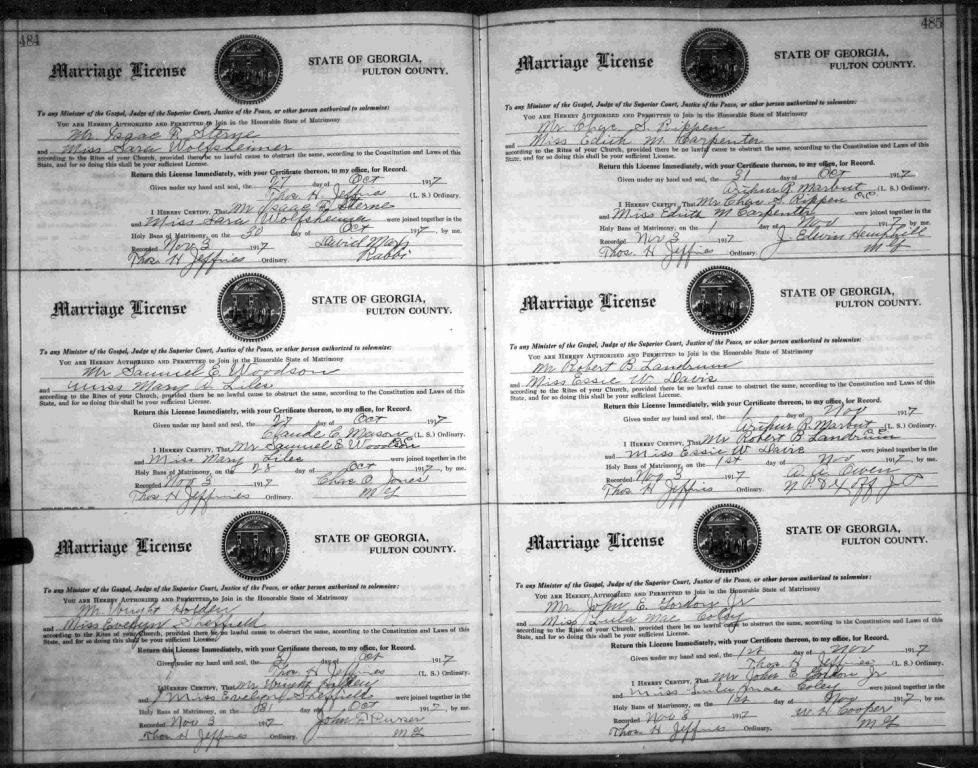 484
Marriage License
STATE OF GEORGIA,
FULTON COUNTY.
To any Minister of the Gospel, Judge of the Superior Court, Justice of the Peace, or other person authorized to solemnize:
YOU ARE HEREBY AUTHORIZED AND PERMITTED to Join in the Honorable State of Matrimony
Mr. Isaac R. Sterne
and Miss Sara Wolfsheimer
according to the Rites of your Church, provided there be no lawful cause to obstruct the same, according to the Constitution and Laws of this
State, and for so doing this shall be your sufficient License.
Return this License Immediately, with your Certificate thereon, to my office, for Record.
Given under my hand and seal, the 27 day of Oct 1917
Thos. H. Jeffries (L. S.) Ordinary.
I HEREBY CERTIFY, That Mr Isaac R. Sterne
and Miss Sara Wolfsheimer were joined together in the
Holy Bans of Matrimony, on the 30 day of Oct 1917, by me.
Recorded Nov 3 1917 David Marx
Thos. H Jeffries Ordinary. Rabbi
Marriage License
STATE OF GEORGIA,
FULTON COUNTY.
To any Minister of the Gospel, Judge of the Superior Court, Justice of the Peace, or other person authorized to solemnize:
YOU ARE HEREBY AUTHORIZED AND PERMITTED to Join in the Honorable State of Matrimony
Mr. Samuel E. Woodson
and Miss Mary A. Liles
according to the Rites of your Church, provided there be no lawful cause to obstruct the same, according to the Constitution and Laws of this
State, and for so doing this shall be your sufficient License.
Return this License Immediately, with your Certificate thereon, to my office, for Record.
Given under my hand and seal, the 27 day of Oct 1917
Claude C. Mason (L. S.) Ordinary.
I HEREBY CERTIFY, That Mr Samuel E Woodson
and Miss Mary Liles were joined together in the
Holy Bans of Matrimony, on the 28 day of Oct 1917, by me.
Recorded Nov 3 1917 Chas. O. Jones
Thos H Jeffries Ordinary. M G
Marriage License
STATE OF GEORGIA,
FULTON COUNTY.
To any Minister of the Gospel, Judge of the Superior Court, Justice of the Peace, or other person authorized to solemnize:
YOU ARE HEREBY AUTHORIZED AND PERMITTED to Join in the Honorable State of Matrimony
Mr. Wright Holden
and Miss Evelyn Sheffield
according to the Rites of your Church, provided there be no lawful cause to obstruct the same, according to the Constitution and Laws of this
State, and for so doing this shall be your sufficient License.
Return this License Immediately, with your Certificate thereon, to my office, for Record.
Given under my hand and seal, the day of Oct 1917
Thos H Jeffries (L. S.) Ordinary.
I HEREBY CERTIFY, That Mr. Wright Holden
and Miss Evelyn Sheffield were joined together in the
Holy Bans of Matrimony, on the 31 day of Oct 1917, by me.
Recorded Nov 3 1917 John F. Purser
Thos H Jeffries Ordinary. M G
485
Marriage License
STATE OF GEORGIA,
FULTON COUNTY.
To any Minister of the Gospel, Judge of the Superior Court, Justice of the Peace, or other person authorized to solemnize:
YOU ARE HEREBY AUTHORIZED AND PERMITTED to Join in the Honorable State of Matrimony
Mr. Chas. S. Rippen
and Miss Edith M. Carpenter
according to the Rites of your Church, provided there be no lawful cause to obstruct the same, according to the Constitution and Laws of this
State, and for so doing this shall be your sufficient License.
Return this License Immediately, with your Certificate thereon, to my office, for Record.
Given under my hand and seal, the 31 day of Oct 1917
Arthur R. Marbut (L. S.) Ordinary.
I HEREBY CERTIFY, That Mr Chas. S. Rippen
and Miss Edith M Carpenter were joined together in the
Holy Bans of Matrimony, on the 1 day of Nov 1917, by me.
Recorded Nov 3 1917 J. Edwin Hemphill
Thos. H Jeffries Ordinary. M G
Marriage License
STATE OF GEORGIA,
FULTON COUNTY.
To any Minister of the Gospel, Judge of the Superior Court, Justice of the Peace, or other person authorized to solemnize:
YOU ARE HEREBY AUTHORIZED AND PERMITTED to Join in the Honorable State of Matrimony
Mr Robert B. Landrum
and Miss Essie W. Davis
according to the Rites of your Church, provided there be no lawful cause to obstruct the same, according to the Constitution and Laws of this
State, and for so doing this shall be your sufficient License.
Return this License Immediately, with your Certificate thereon, to my office, for Record.
Given under my hand and seal, the 1 day of Nov 1917
Arthur R. Marbut (L. S.) Ordinary.
I HEREBY CERTIFY, That Mr Robert B. Landrum
and Miss Essie W. Davis were joined together in the
Holy Bans of Matrimony, on the 1st day of Nov 1917, by me.
Recorded Nov 3 1917 Owen
Thos H Jeffries Ordinary. N. P. & Ex Off J P
Marriage License
STATE OF GEORGIA,
FULTON COUNTY.
To any Minister of the Gospel, Judge of the Superior Court, Justice of the Peace, or other person authorized to solemnize:
YOU ARE HEREBY AUTHORIZED AND PERMITTED to Join in the Honorable State of Matrimony
Mr. John E. Gordon Jr
and Miss Lula Mae Coley
according to the Rites of your Church, provided there be no lawful cause to obstruct the same, according to the Constitution and Laws of this
State, and for so doing this shall be your sufficient License.
Return this License Immediately, with your Certificate thereon, to my office, for Record.
Given under my hand and seal, the 1st day of Nov 1917
Thos H. Jeffries (L. S.) Ordinary.
I HEREBY CERTIFY, That Mr John E Gordon Jr
and Miss Lula Mae Coley were joined together in the
Holy Bans of Matrimony, on the 1st day of Nov 1917, by me.
Recorded Nov 3 1917 W. H Cooper
Thos H Jeffries Ordinary. M G